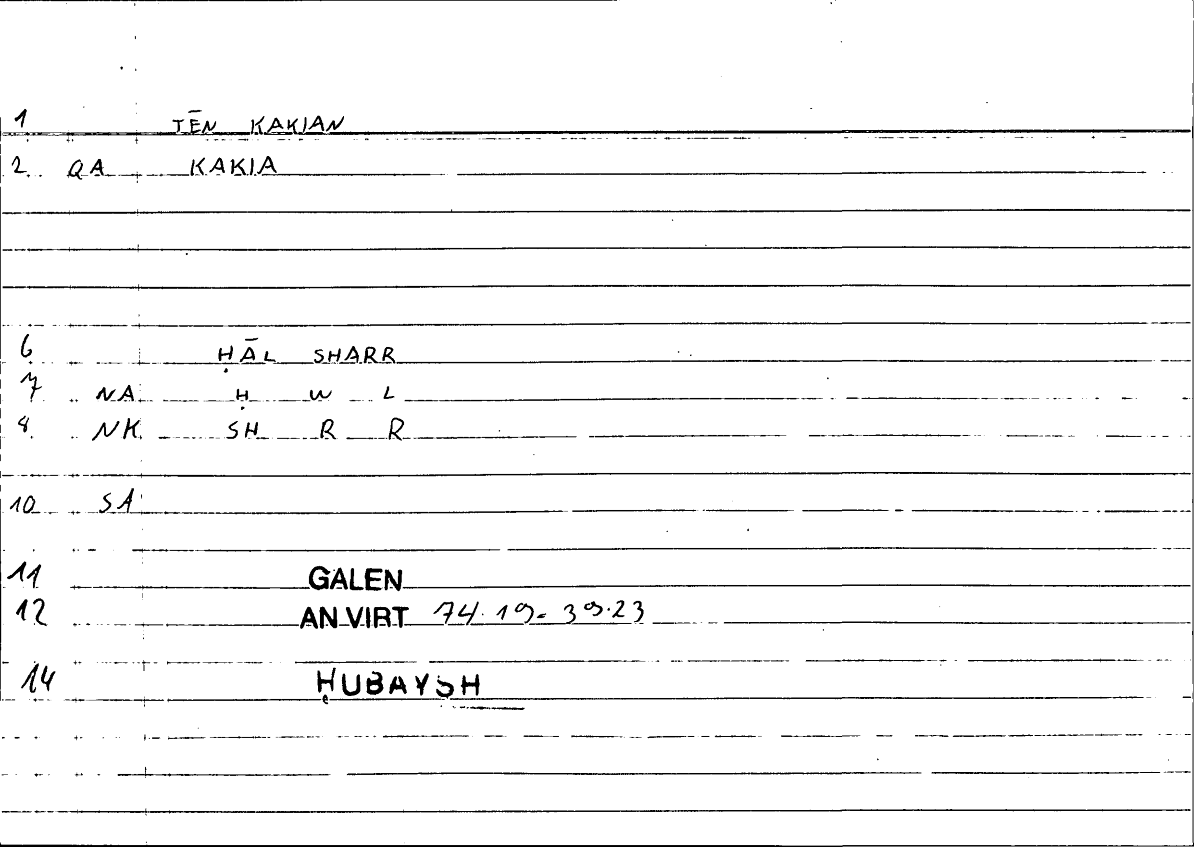 1 TĒN KAKIAN
2. QA KAKIA
6 ḤĀL SHARR
7 NA Ḥ W L
8. NK SH R R
10 SA
11 GALEN
12 AN VIRT 74.19-39.23
14 ḤUBAYSH